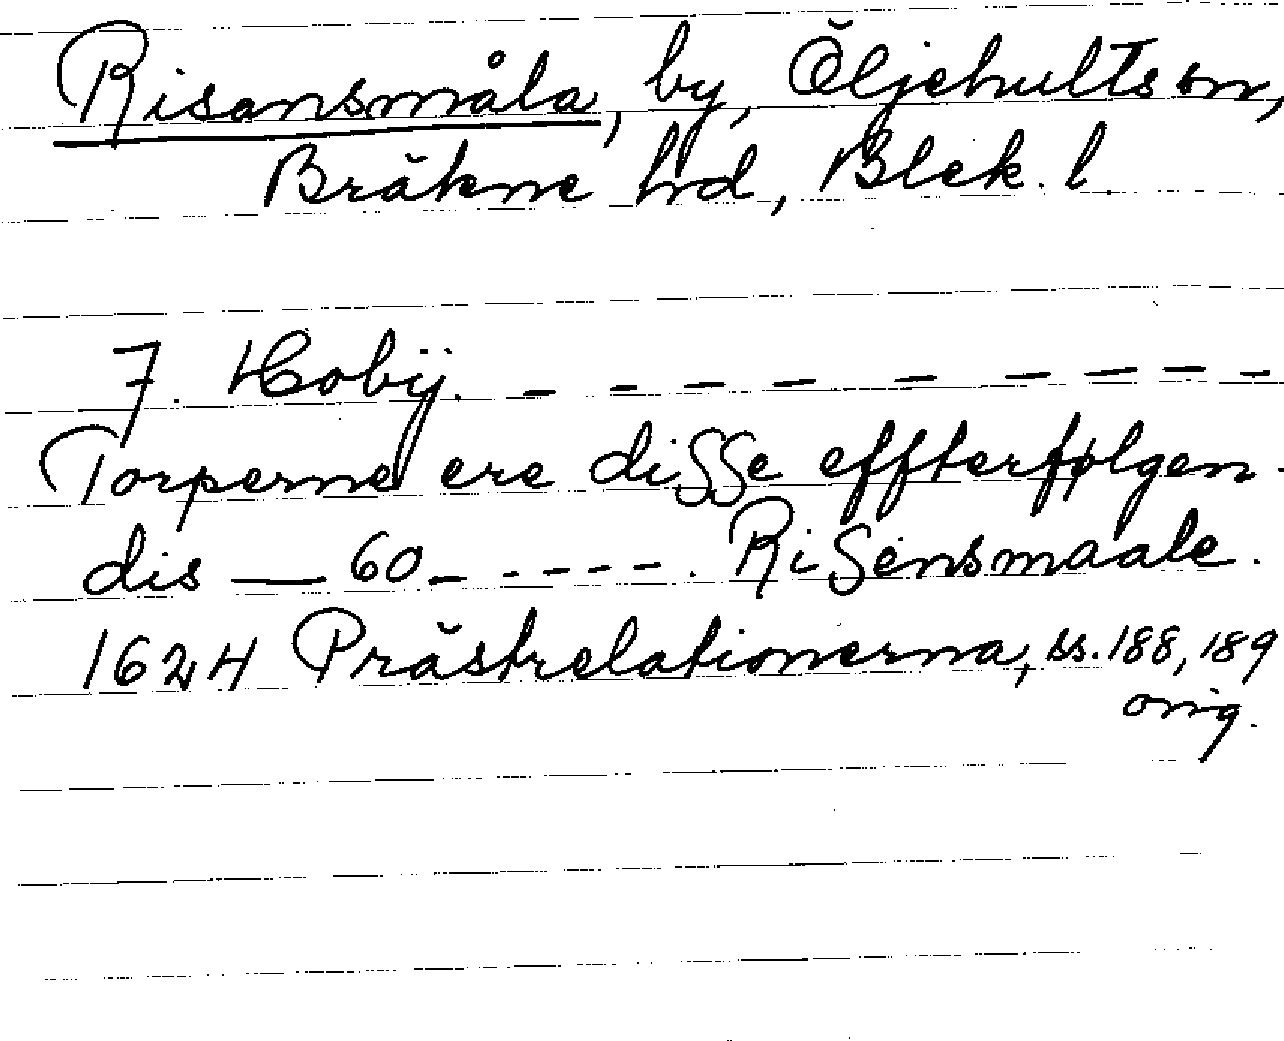 Risansmåla, by, Öljehults sn,
Bräkne hd, Blek. l.
7. Hobÿ. – – – – – – – – –
Torperne ere disse effterfølgen-
dis — 60 – - - - - - . Risensmaale.
1624 Prästrelationerna, ss. 188, 189
orig.